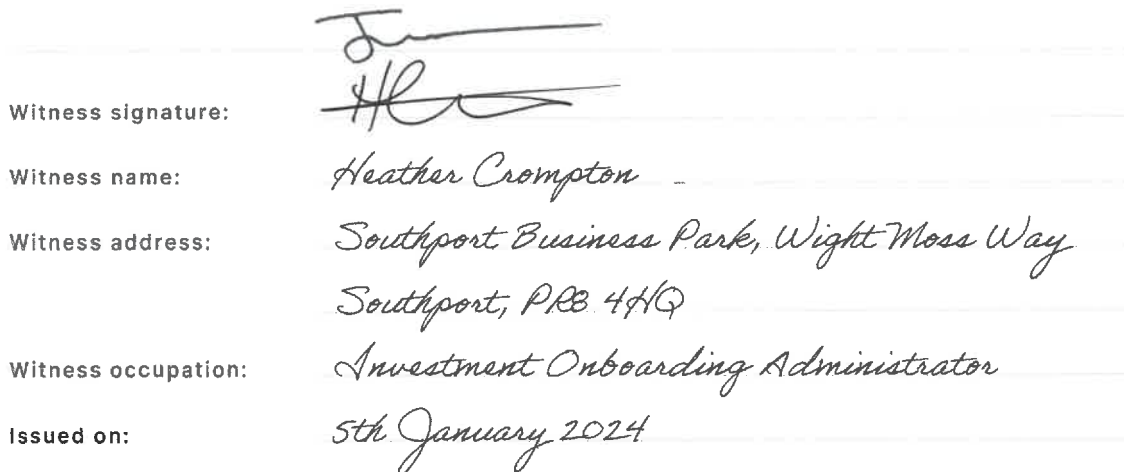 Witness signature:
Witness name: Heather Crompton
Witness address: Southport Business Park, Wight Moss Way
Southport, PR8 4HQ
Witness occupation: Investment Onboarding Administrator
Issued on: 5th January 2024